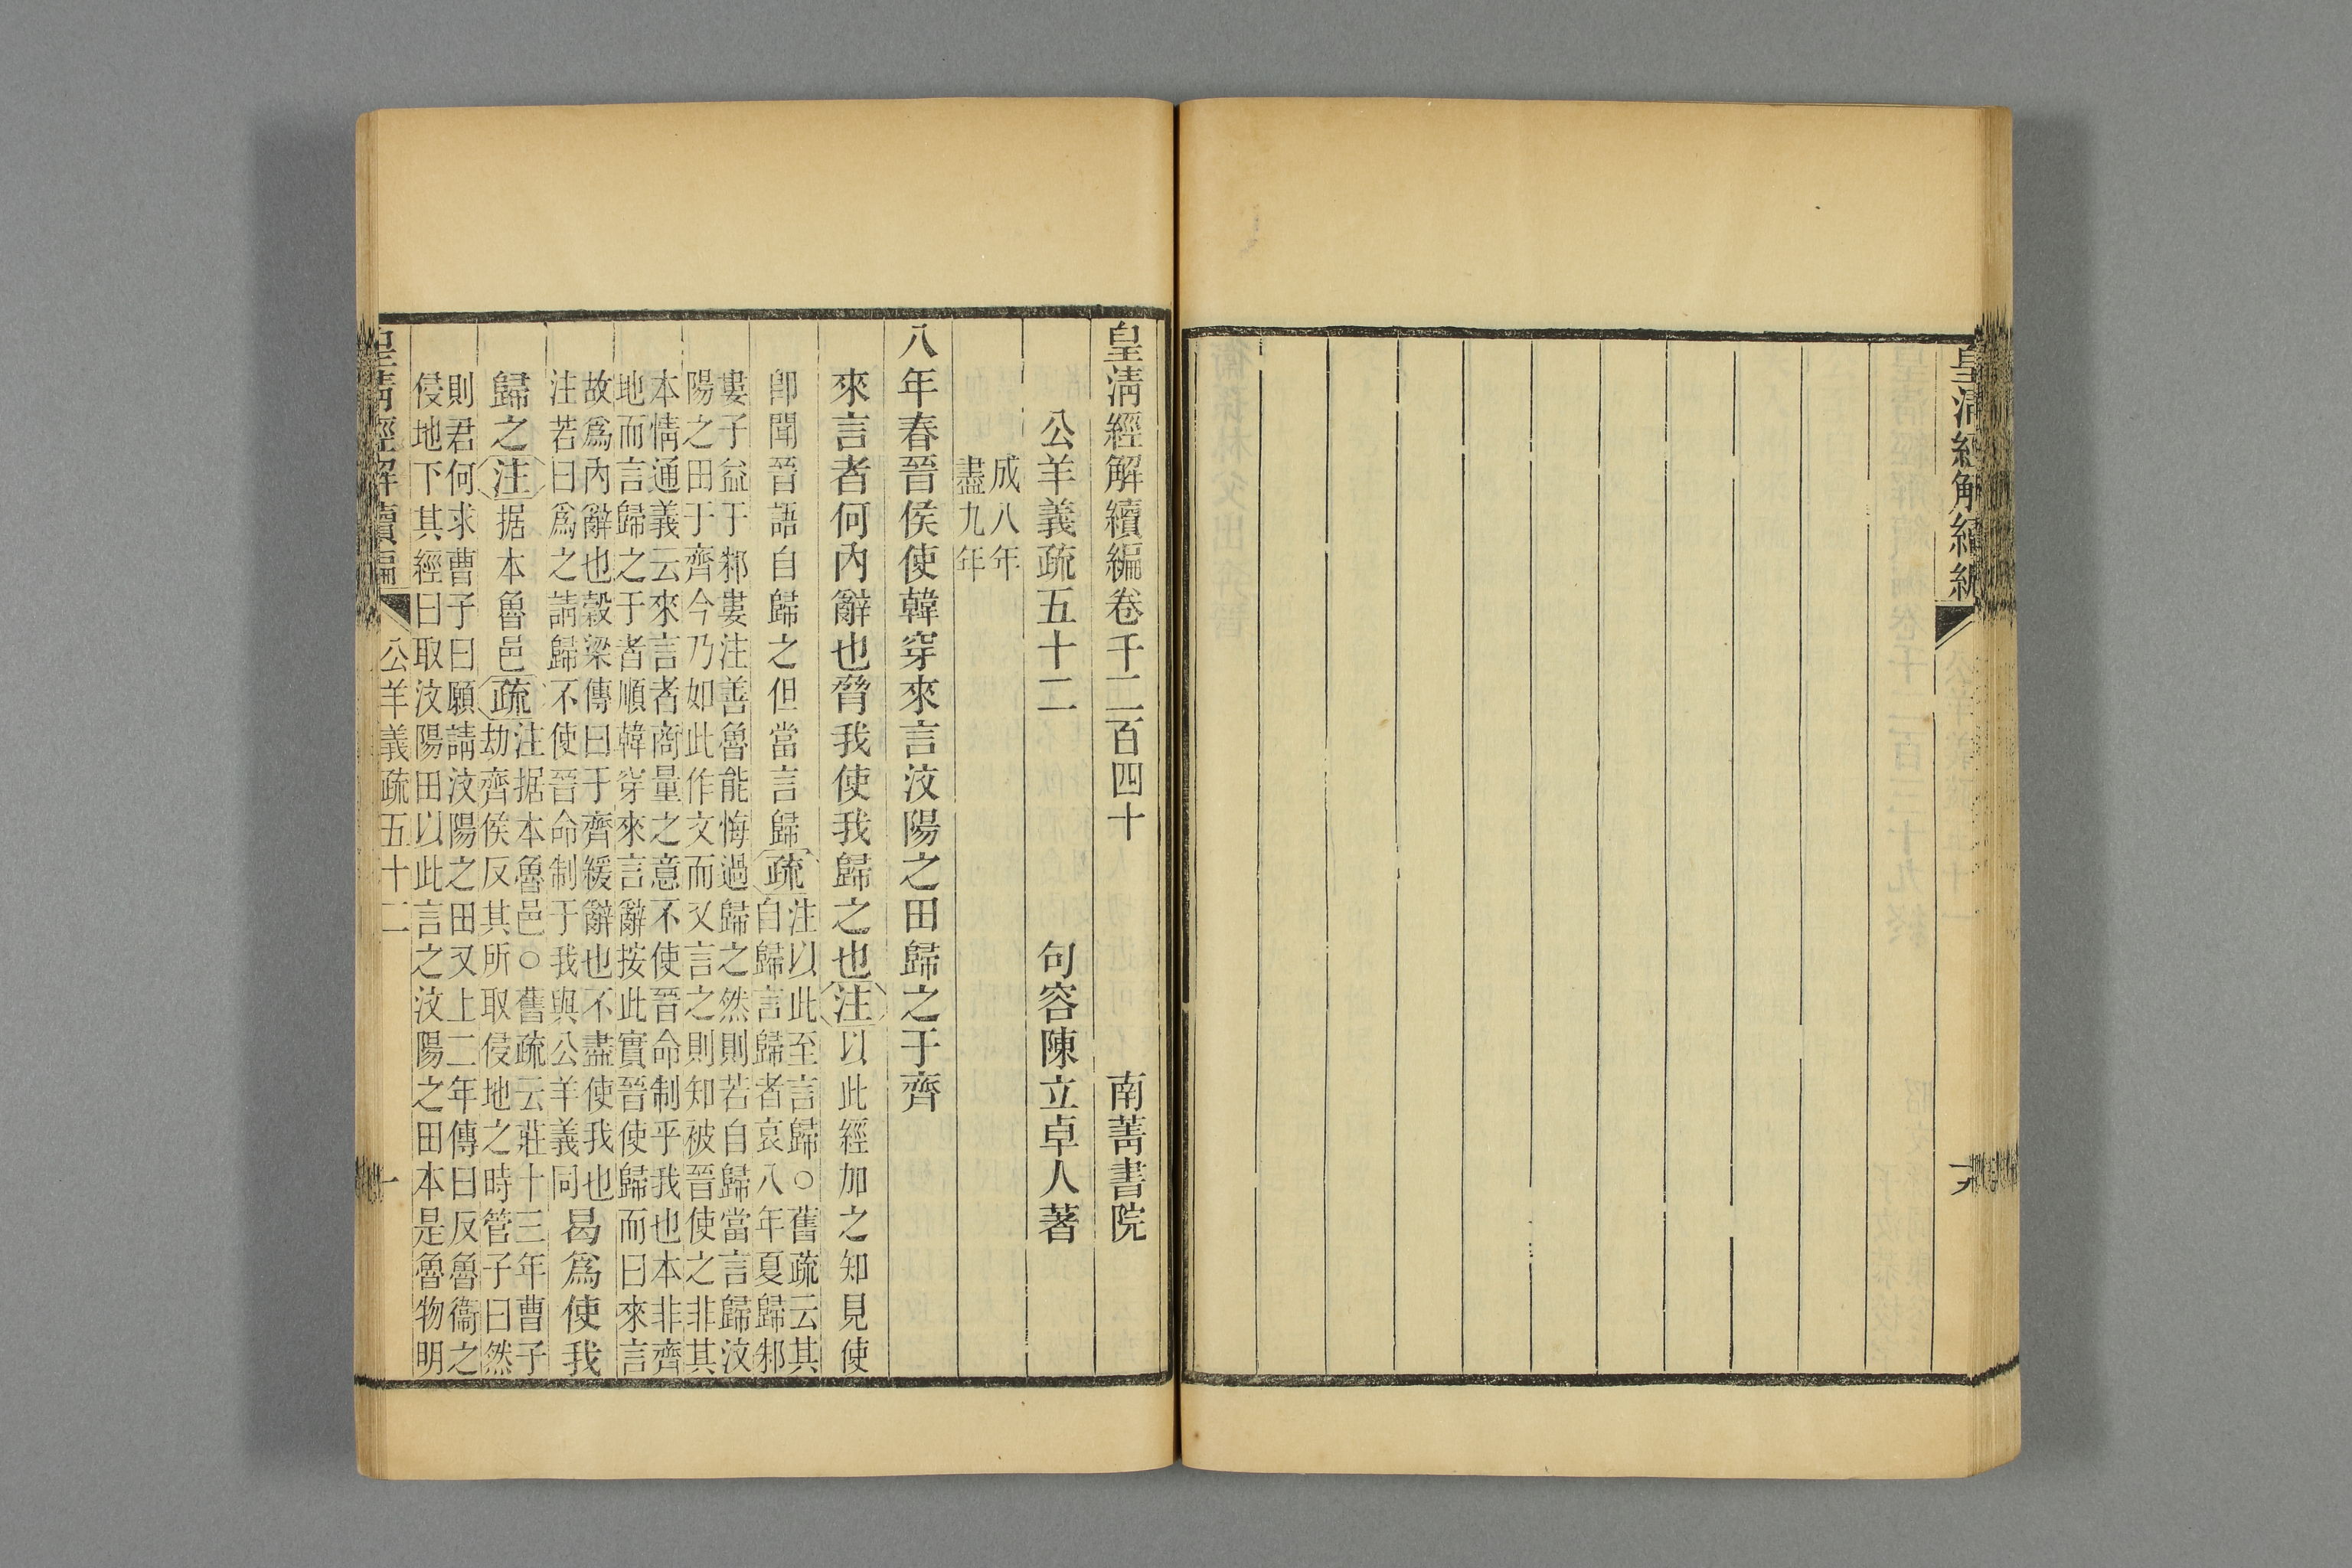 皇清經解續編
十九
皇清經解續編卷千二百四十 南菁書院
公羊義疏五十二 句容陳立卓人著
成八年
盡九年
八年春晉侯使韓穿來言汶陽之田歸之于齊
來言者何內辭也脅我使我歸之也注以此經加之知見使
卽聞晉語自歸之但當言歸疏注以此至言歸○舊疏云其
自歸言歸者哀八年夏歸邾
婁子益于邾婁注善魯能悔過歸之然則若自歸當言歸汶
陽之田于齊今乃如此作文而又言之則知被晉使之非其
本情通義云來言者商量之意不使晉命制乎我也本非齊
地而言歸之于者順韓穿來言辭按此實晉使歸而曰來言
故爲內辭也穀梁傳曰于齊緩辭也不盡使我也
注若曰爲之請歸不使晉命制于我與公羊義同曷爲使我
歸之注据本魯邑疏注据本魯邑○舊疏云莊十三年曹子
劫齊侯反其所取侵地之時管子曰然
則君何求曹子曰願請汶陽之田又上二年傳曰反魯衞之
侵地下其經曰取汶陽田以此言之汶陽之田本是魯物明
皇清經解續編 公羊義疏五十二 一